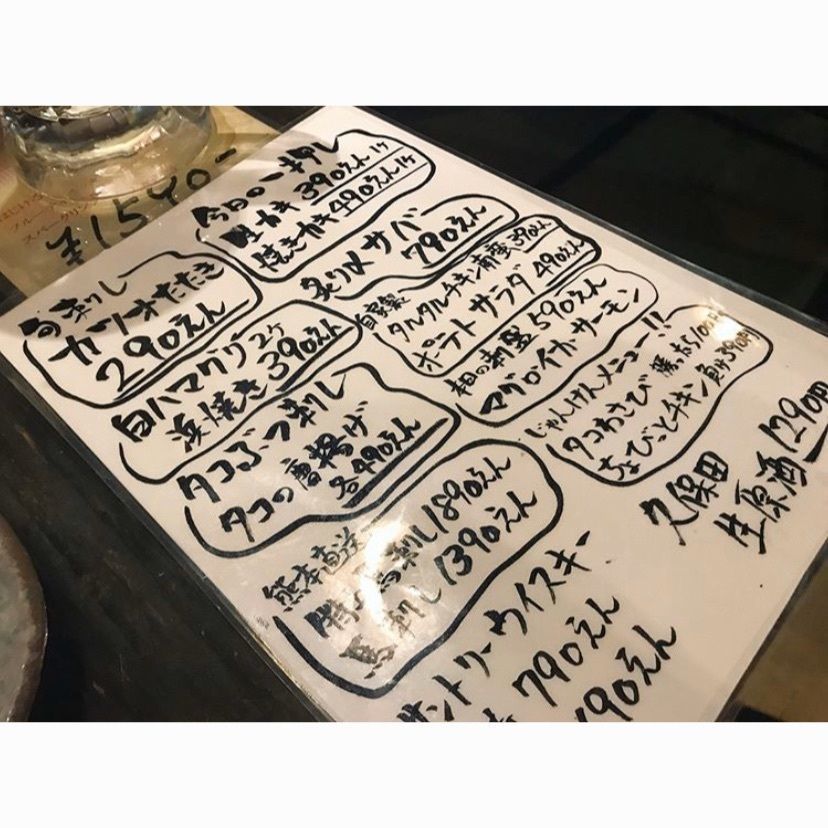 今日の一押し
生カキ 390えん1ケ
焼きカキ 490えん1ケ
炙り〆サバ
790えん
自家製
タルタルチキン南蛮 390えん
ポテトサラダ 490えん
本日の刺盛 590えん
マグロイカサーモン
じゃんけんメニュー!!
タコわさび 勝ったら100円
なびっとチキン 負け390円
久保田
生原酒 1290円
旬刺し
カツオたたき
290えん
白ハマグリ 2ケ
浜焼き 390えん
タコぶつ刺し
タコの唐揚げ
各490えん
熊本直送
馬刺し 1890えん
馬刺し 1390えん
サントリーウイスキー
790えん
190えん
¥1590-
スパークリング